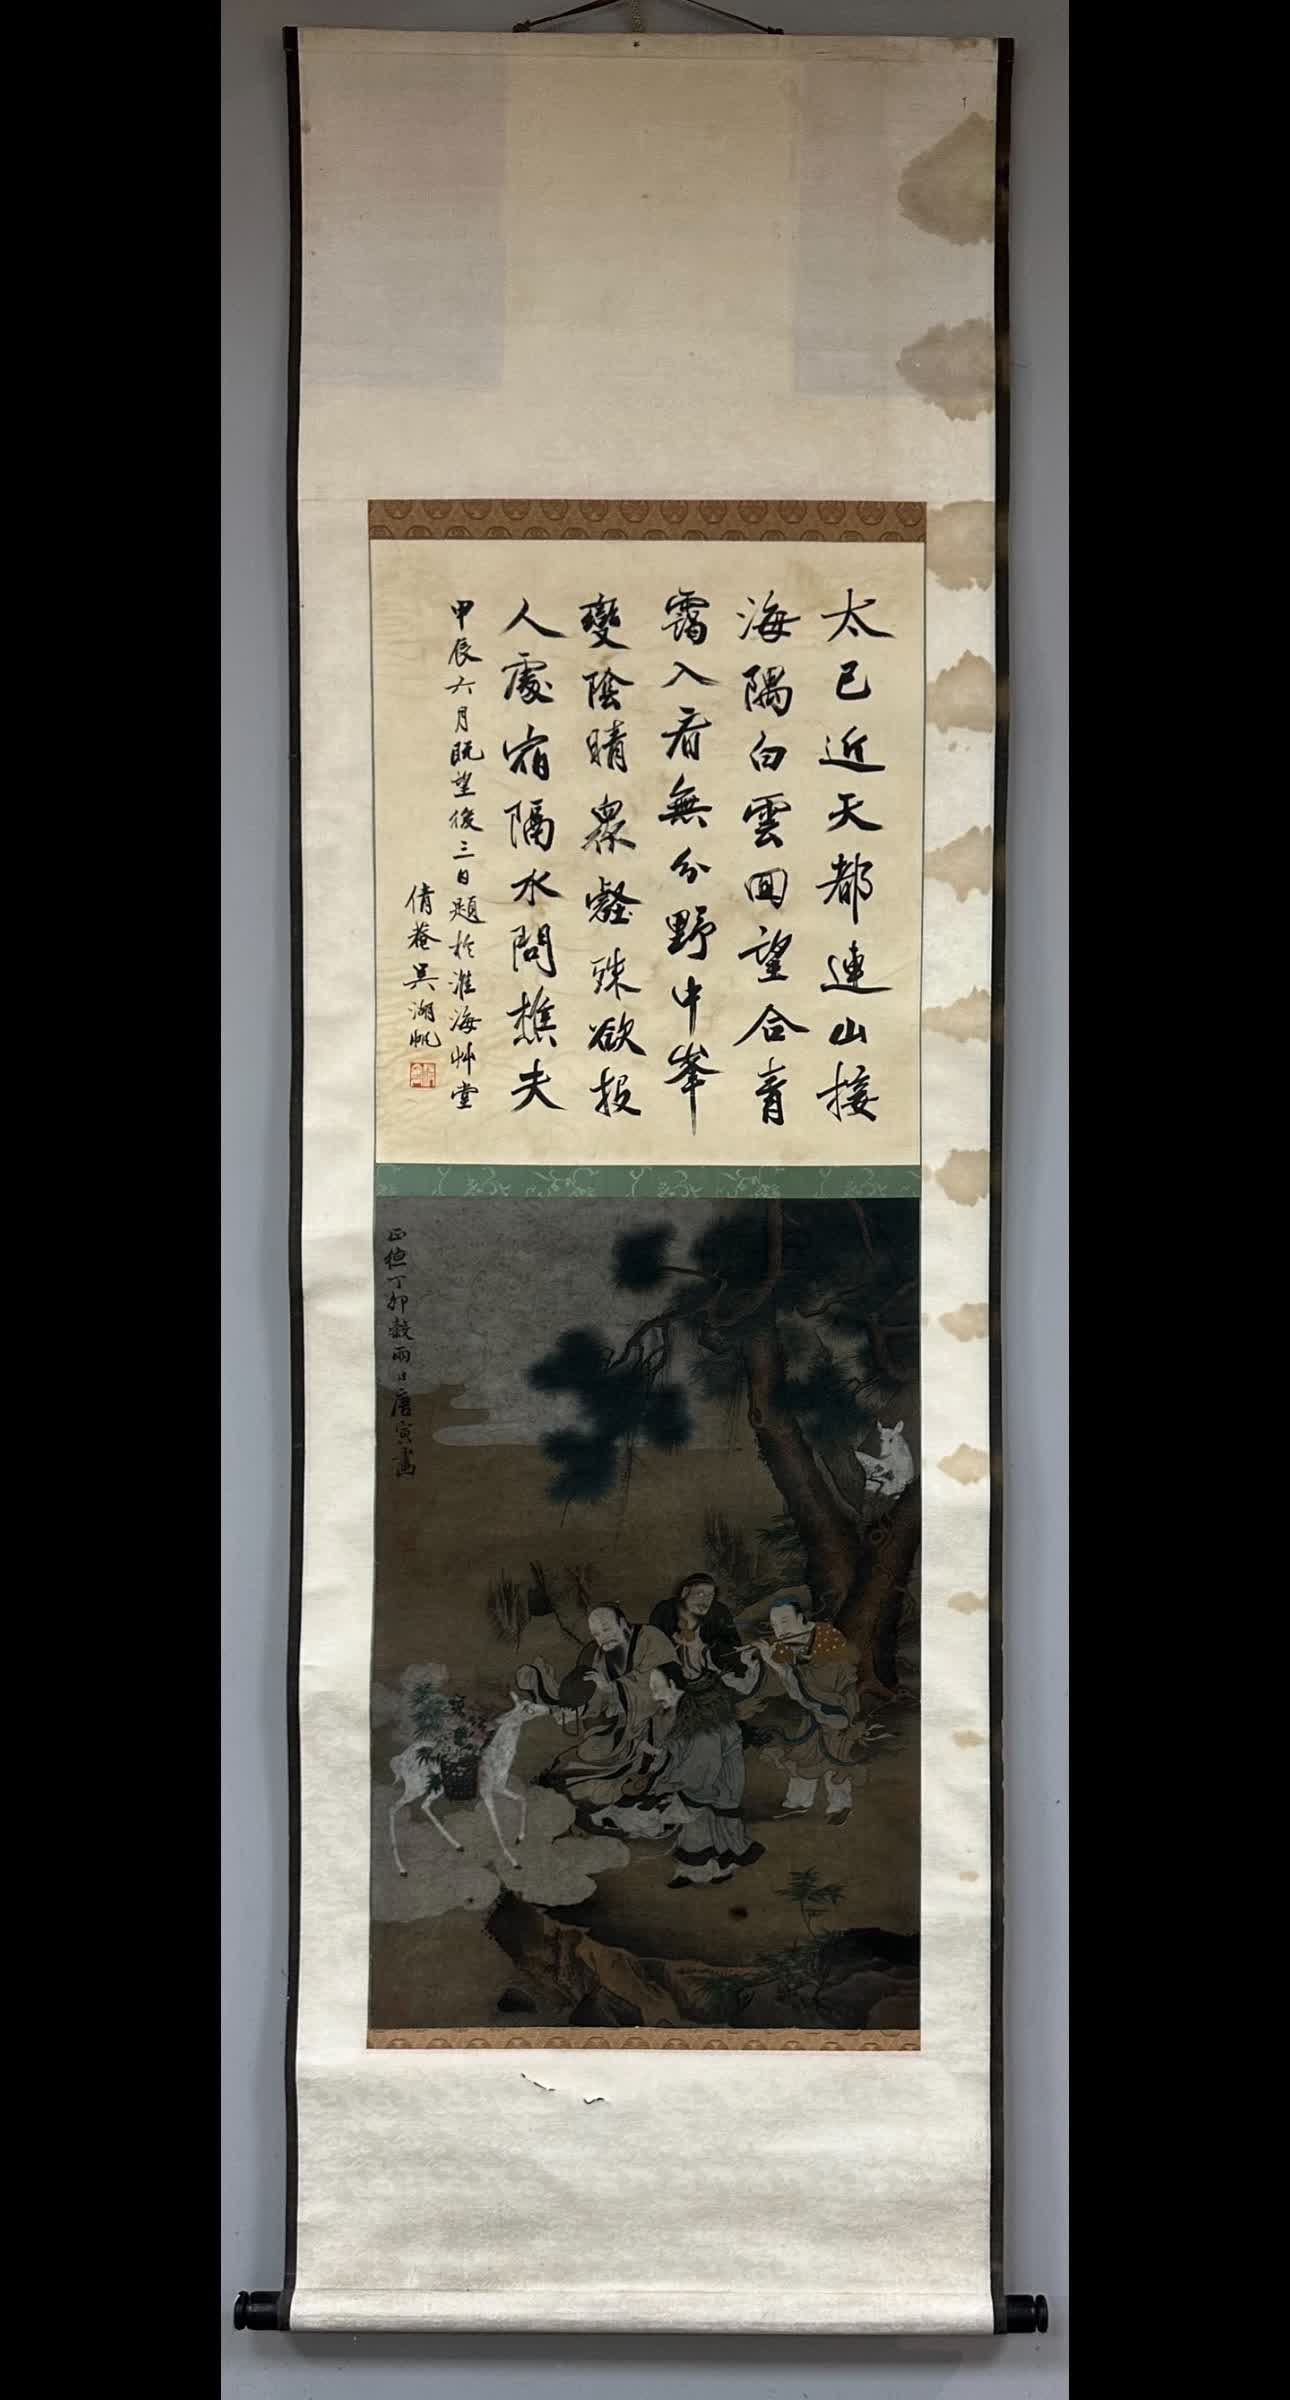 太已近天都連山接
海隅白雲回望合青
靄入看無分野中峯
變陰晴衆壑殊欲投
人處宿隔水問樵夫
甲辰六月既望後三日題於淮海艸堂
倩菴吳湖帆
正德丁卯穀雨日唐寅畫